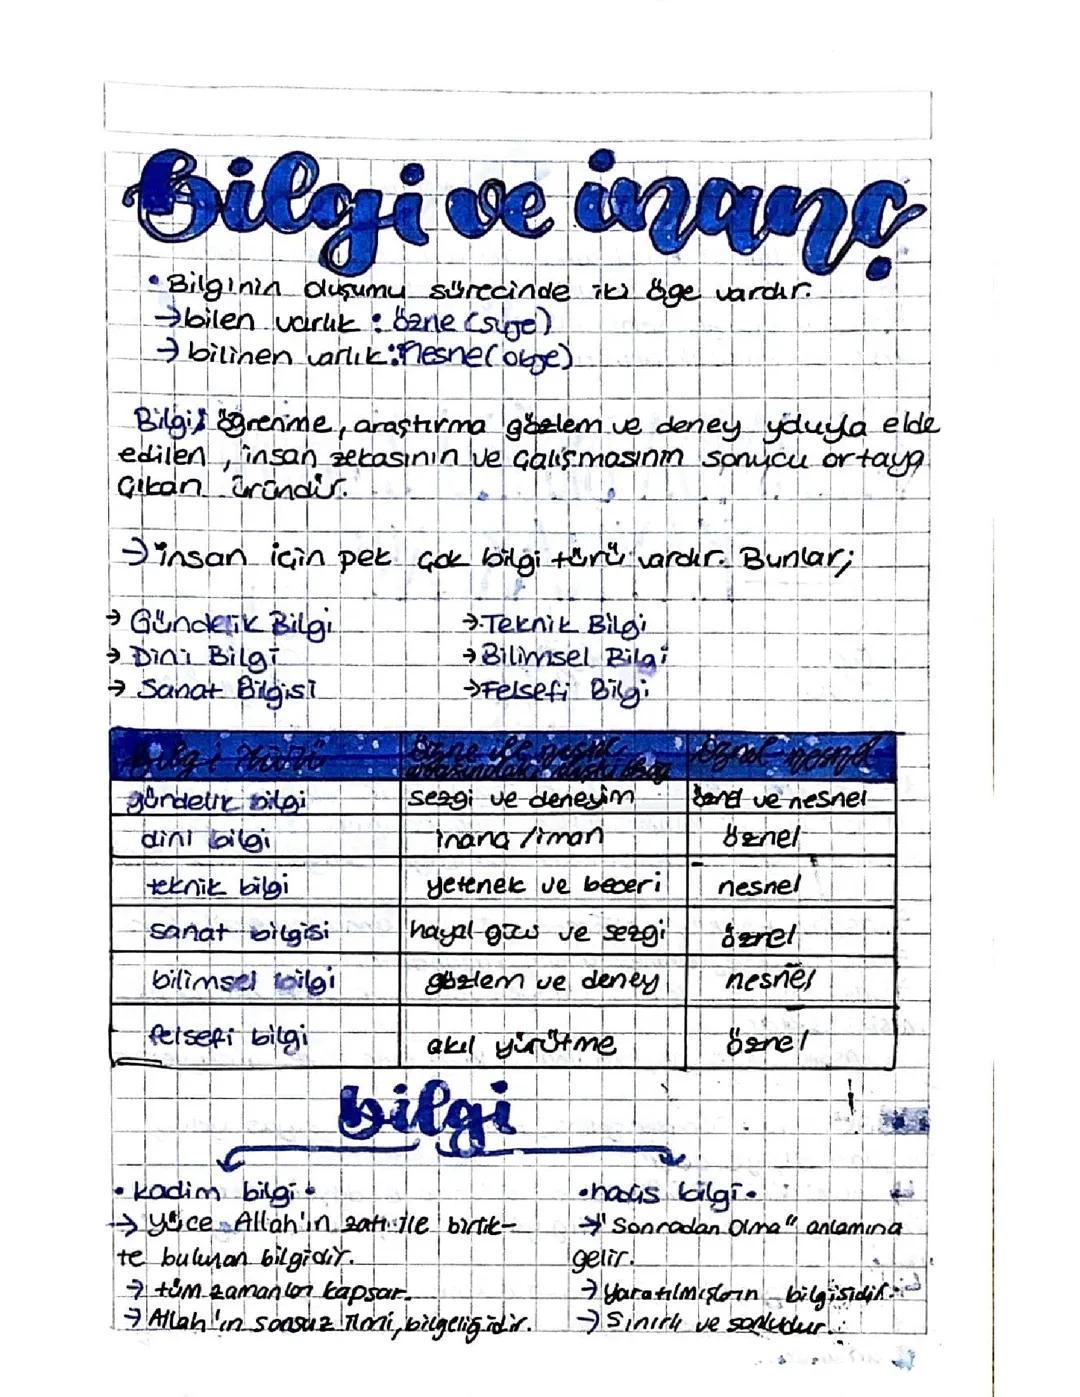 Bilgi ve inanç
• Bilginin oluşumu sürecinde iki öge vardır.
→ bilen varlık : özne (süje)
→ bilinen varlık: Nesne (obje)
Bilgi; öğrenme, araştırma gözlem ve deney yoluyla elde
edilen, insan zekasının ve çalışmasının sonucu ortaya
çıkan üründür.
→ insan için pek çok bilgi türü vardır. Bunlar;
→ Gündelik Bilgi →Teknik Bilgi
→ Dini Bilgi →Bilimsel Bilgi
→ Sanat Bilgisi →Felsefi Bilgi
Bilgi Türü Özne ile nesne öznel-nesnel
arasındaki
gündelik bilgi sezgi ve deneyim öznel ve nesnel
dini bilgi inanç /iman öznel
teknik bilgi yetenek ve beceri nesnel
sanat bilgisi hayal gücü ve sezgi öznel
bilimsel bilgi gözlem ve deney nesnel
felsefi bilgi akıl yürütme öznel
bilgi
• kadim bilgi •
→ Yüce Allah'ın zatı ile birlik-
te bulunan bilgidir.
→ tüm zamanları kapsar.
→ Allah'ın sonsuz ilmi, bilgeliğidir.
• hadis bilgi •
→"Sonradan Olma" anlamına
gelir.
→ Yaratılmışların bilgisidir.
→ Sınırlı ve sonludur.